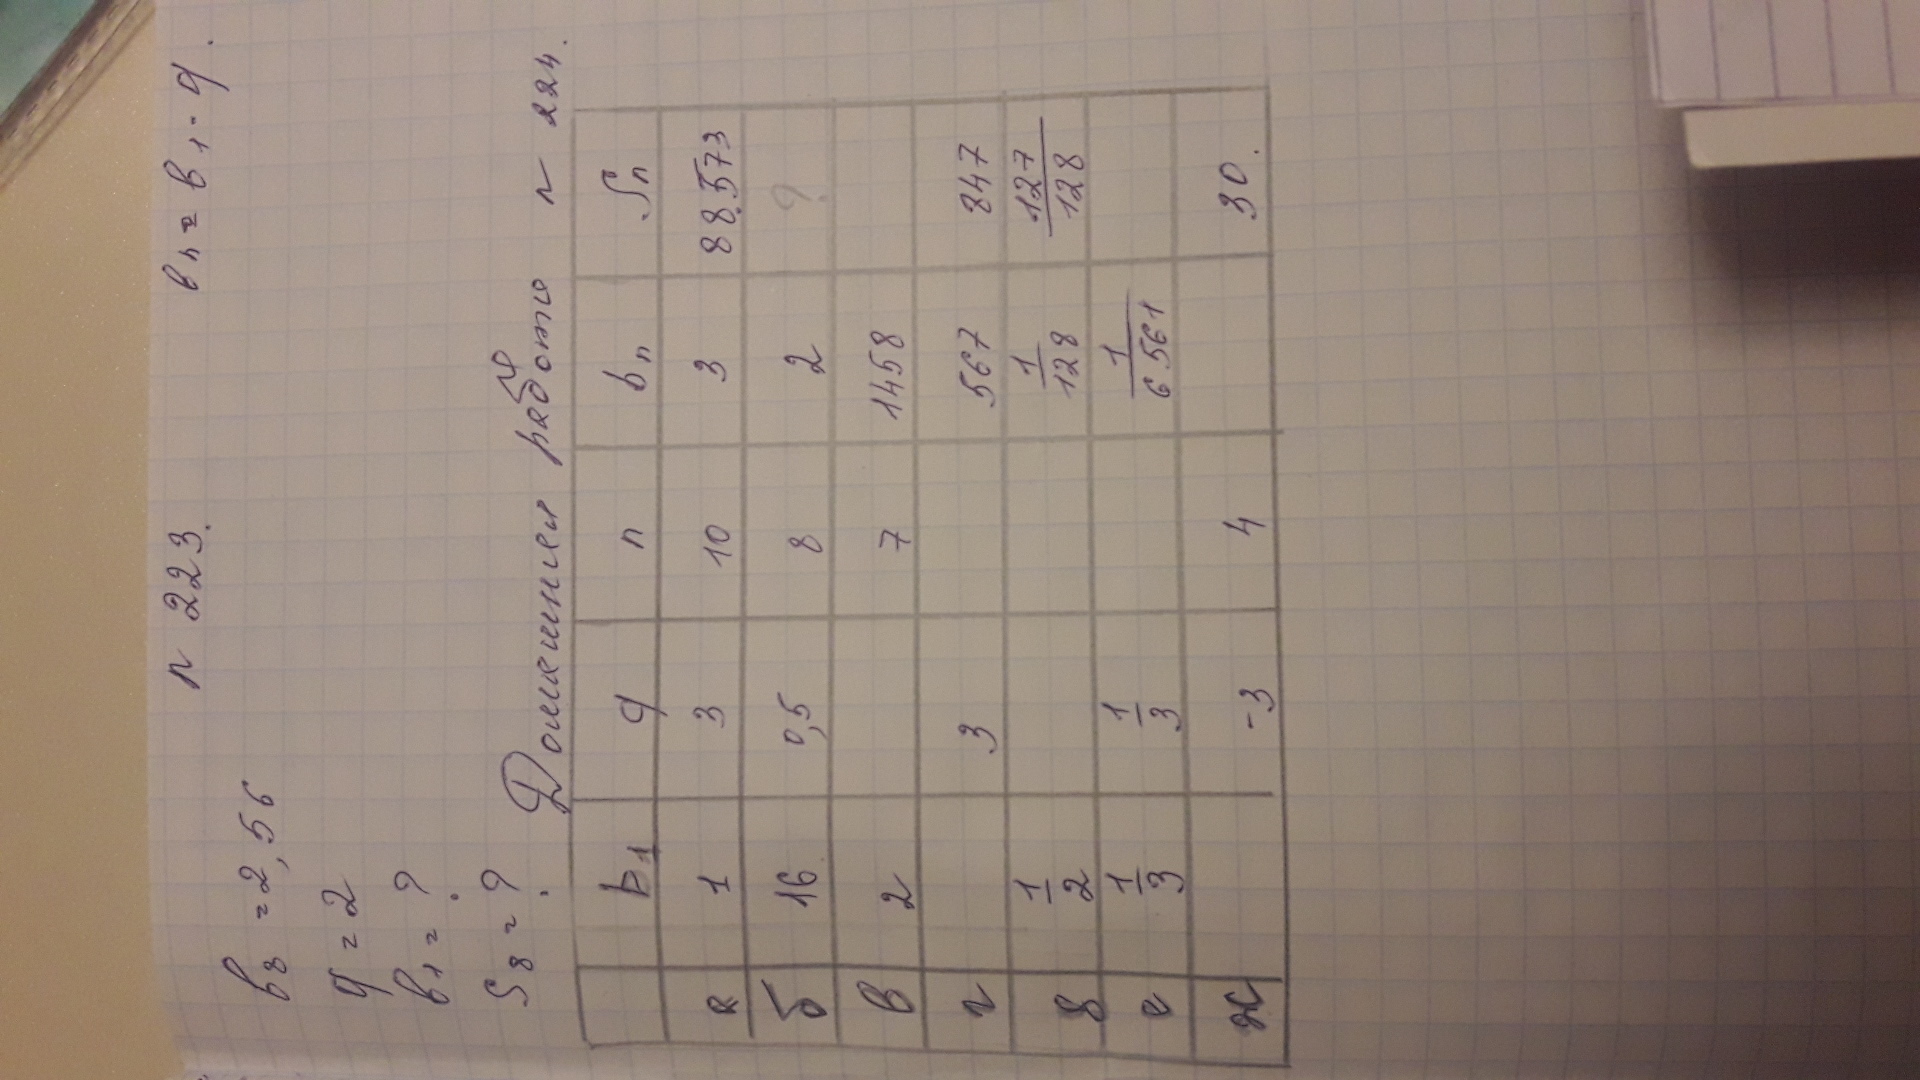 n 223. вn = в1 · q.
в8 = 2,56
q = 2
в1 = ?
S8 = ?
Домашняя работа n 224.
b1 q n bn Sn
а 1 3 10 3 88.573
б 16 0,5 8 2 ?
в 2 7 1458
г 3 567 847
д 1/2 1/128 127/128
е 1/3 1/3 1/6561
ж -3 4 30.